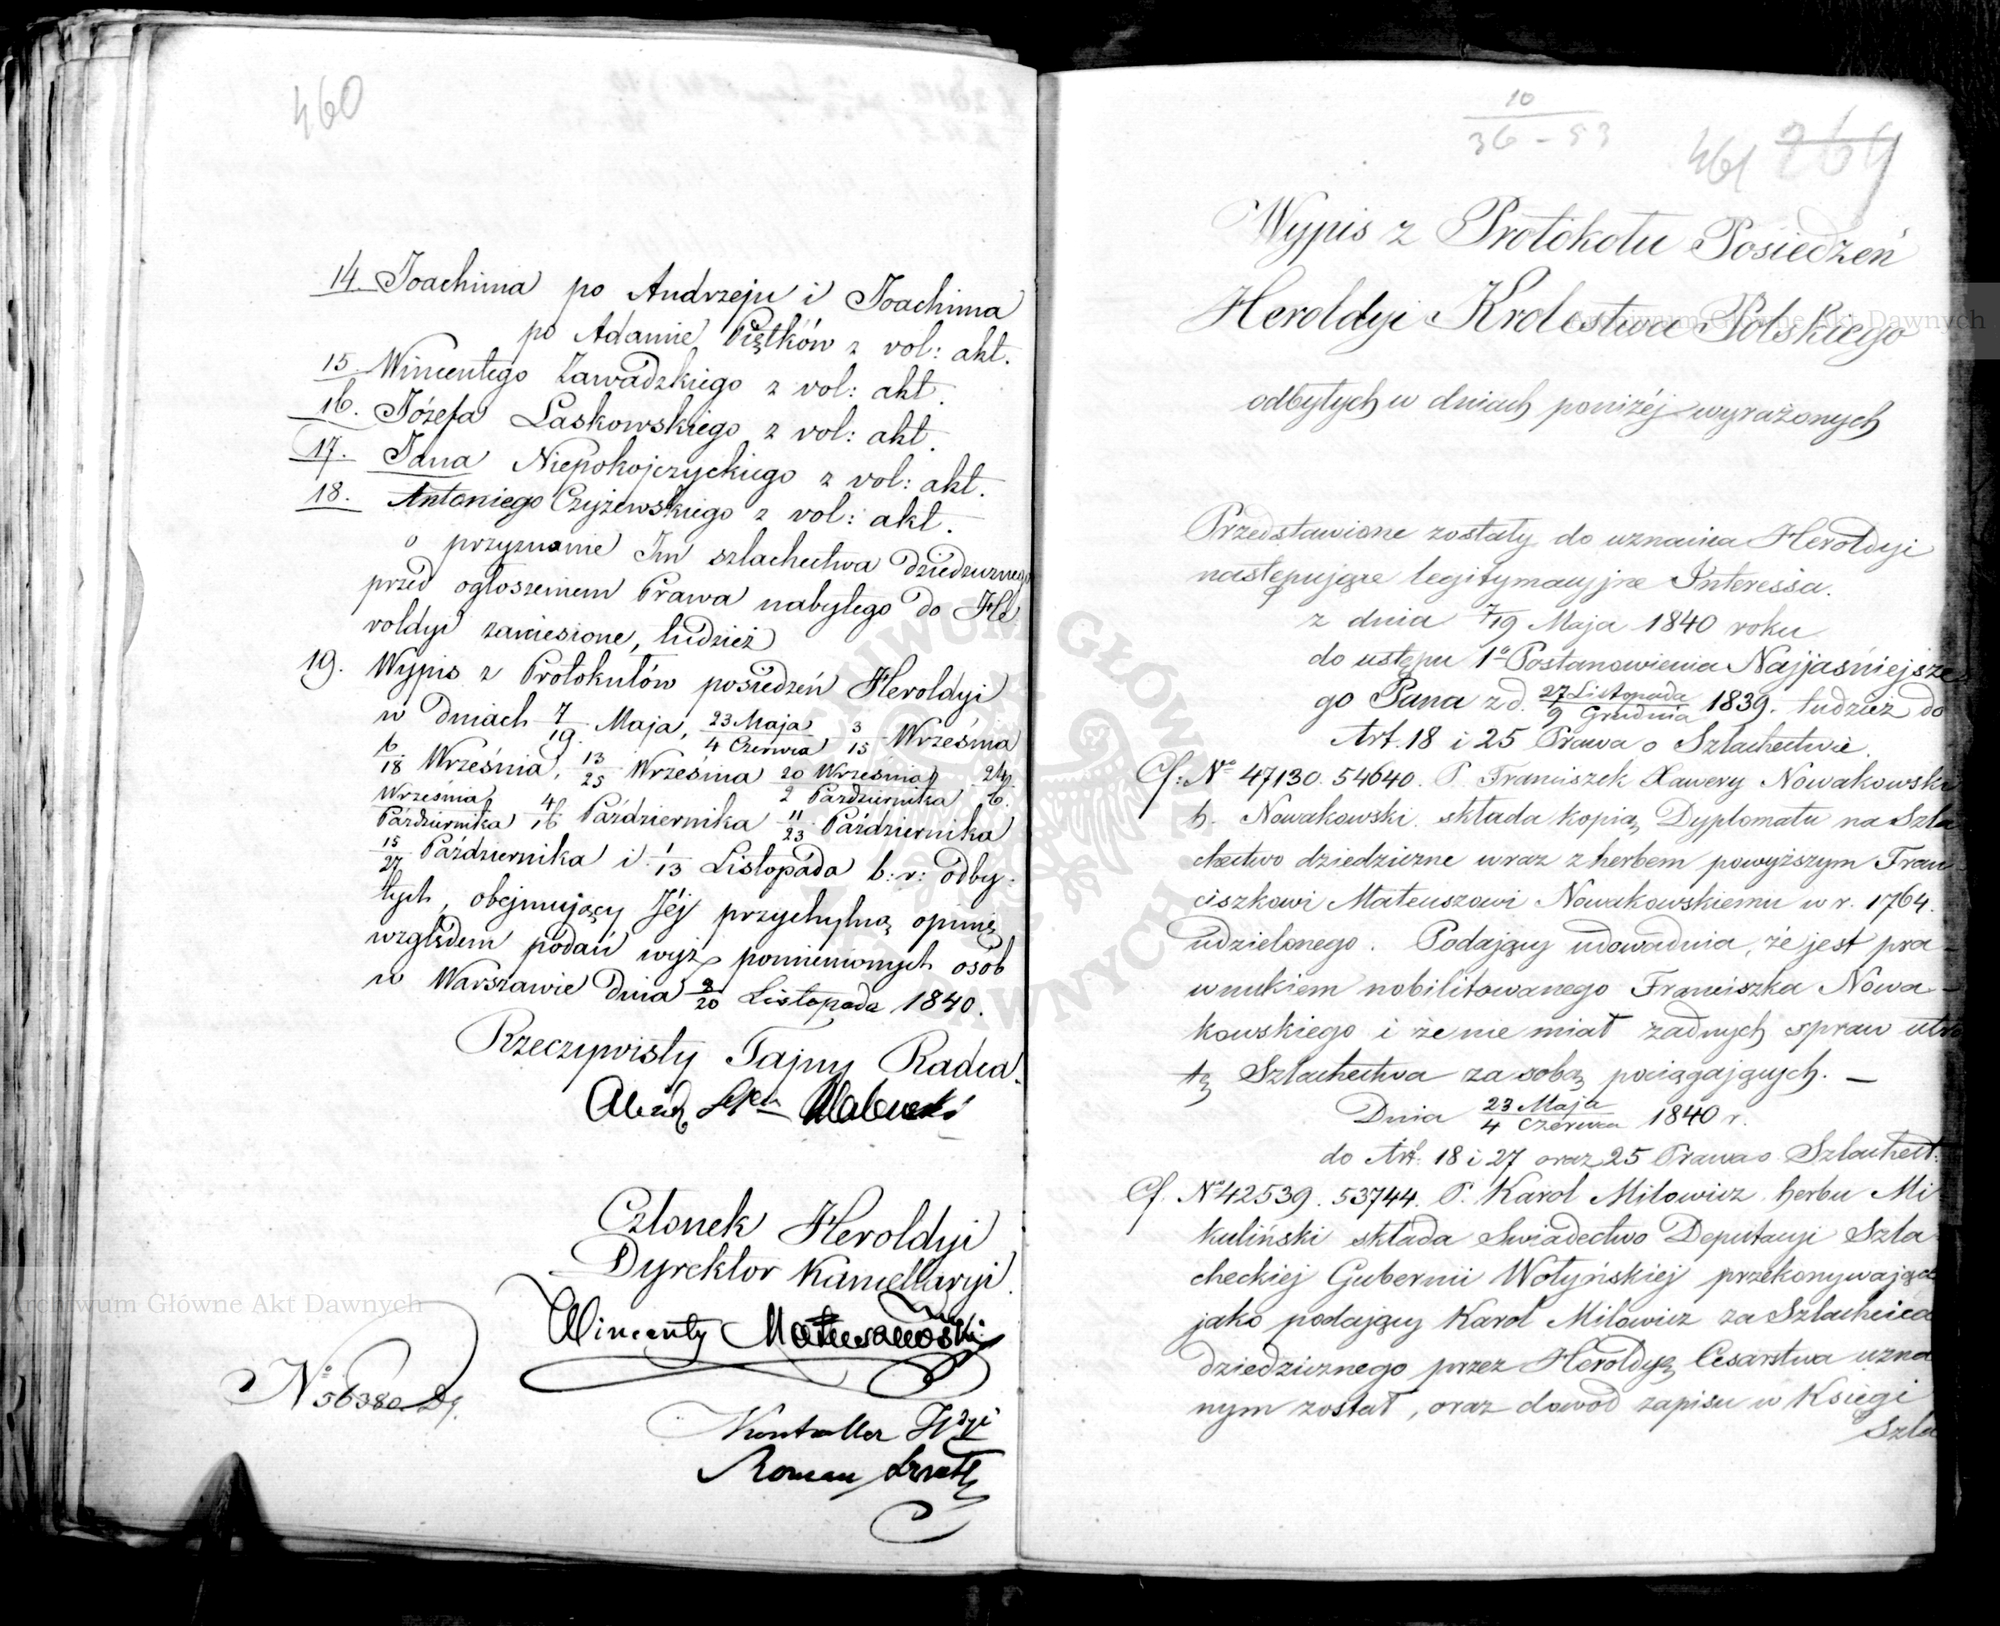 460
14. Joachima po Andrzeju i Joachima
po Adamie Piętków z vol: akt.
15. Wincentego Zawadzkiego z vol: akt.
16. Józefa Laskowskiego z vol: akt.
17. Jana Niepokojczyckiego z vol: akt.
18. Antoniego Czyżewskiego z vol: akt.
o przyznanie Im szlachectwa dziedzicznego
przed ogłoszeniem Prawa nabytego do He
roldyi zaniesione, tudzież
19. Wypis z Protokułów posiedzeń Heroldyi
w dniach 7/19 Maja, 23 Maja/4 Czerwca 3/15 Września
6/18 Września, 13/25 Września 20 Września/2 Października 24/6
Września/Października 4/16 Października 11/23 Października
15/27 Października i 1/13 Listopada b: r: odby-
tych, obejmujący Jéj przychylną opinię
względem podań wyż pomienionych osób
w Warszawie Dnia 8/20 Listopada 1840.
Rzeczywisty Tajny Radca.
Członek Heroldyi
Dyrektor Kancellaryi.
Wincenty Matuszewski
No 56380
Kontroller Hdyi
Roman
10/36 - 53
461 264
Wypis z Protokołu Posiedzeń
Heroldyi Krolestwa Polskiego
odbytych w dniach poniżéj wyrażonych
Przedstawione zostały do uznania Heroldyi
następujące legitymacyjne Interessa.
z dnia 7/19 Maja 1840 roku
do ustępu 1o Postanowienia Najjaśniejsze
go Pana z d. 27 Listopada/9 Grudnia 1839. tudzież do
Art. 18 i 25 Prawa o Szlachectwie.
Cf: No 47130. 54640. P. Franciszek Xawery Nowakowski
h. Nowakowski. składa kopią Dyplomatu na Szla
chectwo dziedziczne wraz z herbem powyższym Fran
ciszkowi Mateuszowi Nowakowskiemu w r. 1764.
udzielonego. Podający udowadnia, że jest pra-
wnukiem nobilitowanego Franciszka Nowa-
kowskiego i że nie miał żadnych spraw utra
tę Szlachectwa za sobą pociągających. —
Dnia 23 Maja/4 Czerwca 1840 r.
do Art. 18 i 27 oraz 25 Prawa o Szlachect:
Cf. No 42539. 53744. P. Karol Milowicz herbu Mi
kuliński składa Swiadectwo Deputacyi Szla
checkiej Gubernii Wołyńskiej przekonywające
jako podający Karol Milowicz za Szlachcica
dziedzicznego przez Heroldyą Cesarstwa uzna
nym został, oraz dowód zapisu w Księgi
Szla
Archiwum Główne Akt Dawnych
Archiwum Główne Akt Dawnych
ARCHIWUM GŁÓWNE AKT DAWNYCH